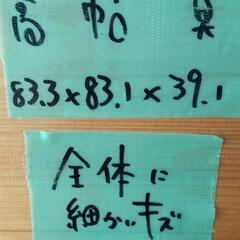 高 幅 奥
83.3×83.1×39.1
全体に
細かいキズ